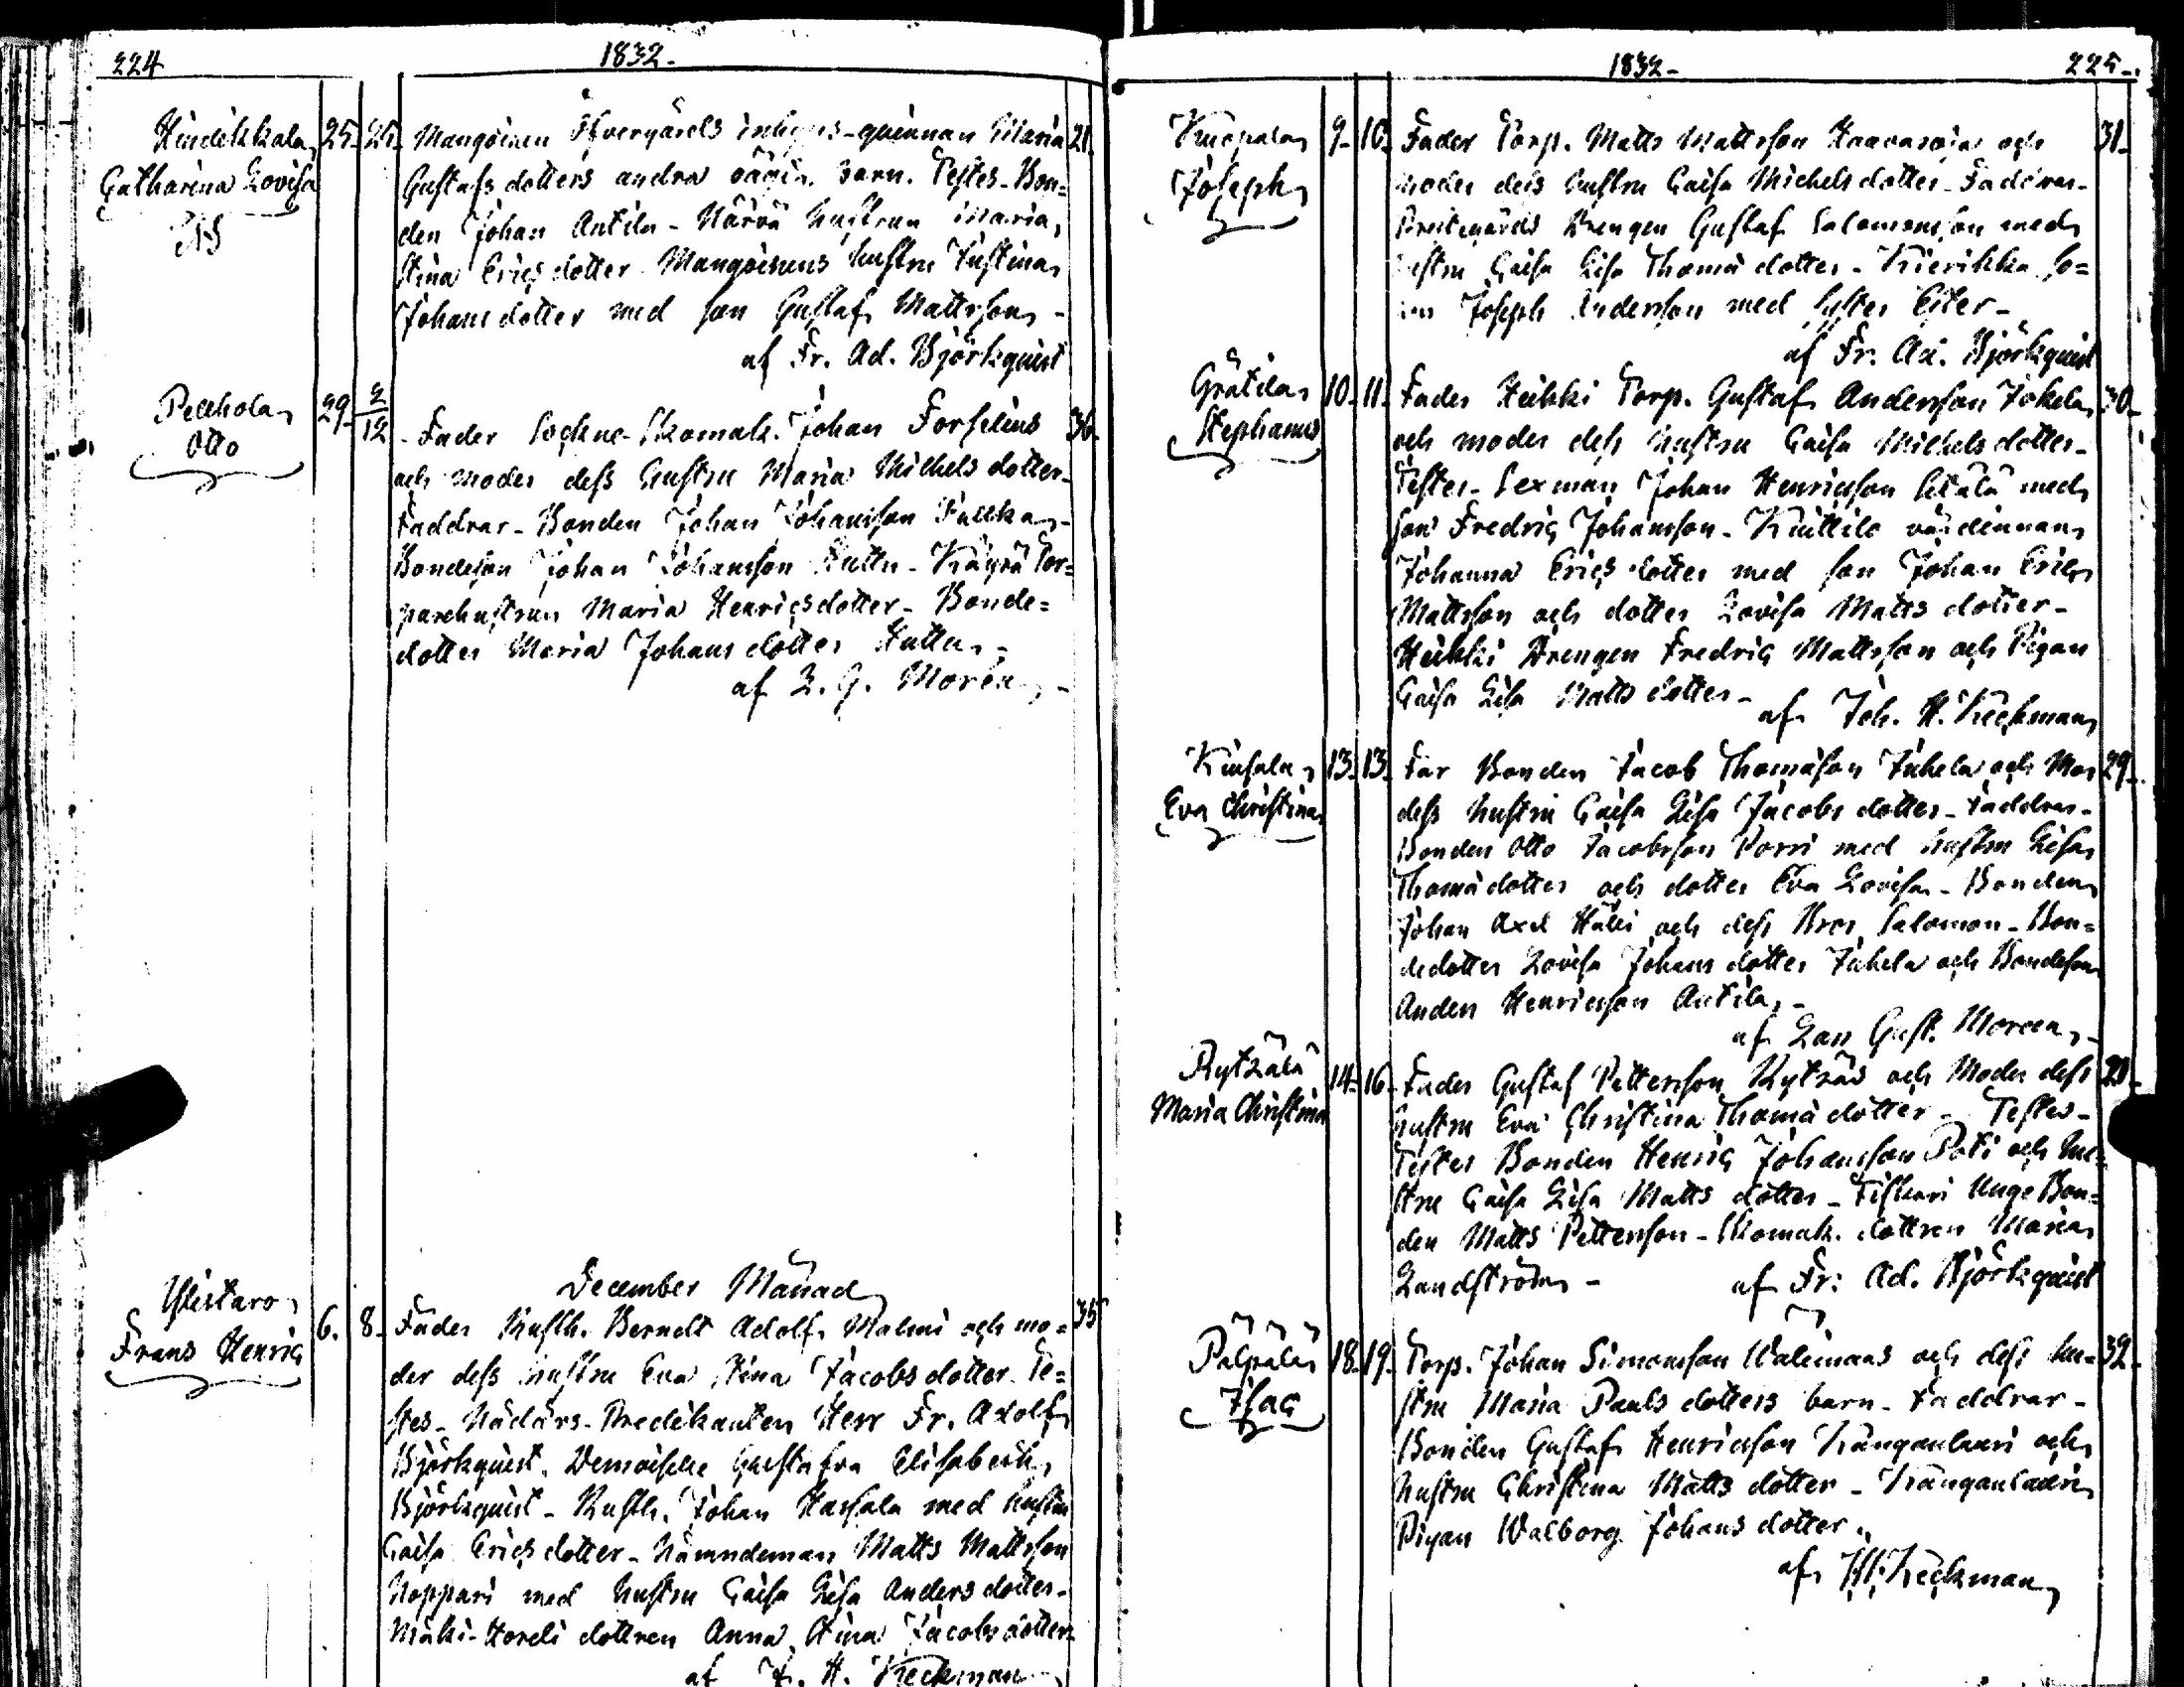 224
1832.
Hindikkala 25. 25. Mangoinen Öfvergårds inhyses-qvinnan Maria 21.
Catharina Lovisa Gustafs dotters andra oägta barn. Testes-Bon=
den Johan Antila - Närvä hustrun Maria
Stina Erics dotter. Mangoinens hustru Justina
Johans dotter med son Gustaf Mattsson -
af Fr. Ad. Björkquist
Pellhola 29. 2/12 - Fader Sockne-Skomak. Johan Forselius 36.
Otto
och moder dess hustru Maria Michels dotter-
Faddrar - Bonden Johan Johansson
Bondeson Johan Johansson Huttu - Käyrä Tor=
parehustrun Maria Henricsdotter - Bonde=
dotter Maria Johans dotter Huttu -
af Z. G. Moréen -
December Månad
Ylistaro 6. 8. Fader Rusth. Berndt Adolf Malmi och mo= 35
Frans Henric
der dess hustru Eva Stina Jacobs dotter. Te=
stes - Nådårs-Predikanten Herr Fr. Adolf
Björkquist. Demoiselle Gustafva Elisabeth
Björkquist - Rusth. Johan Hassala med hustru
Caisa Erics dotter - Nämndeman Matts Mattsson
Noppari med hustru Caisa Lisa Anders dotter-
Mäki- dottren Anna Stina Jacobs dotter
af J. H. Keckman
1832-
225-
Knopala 9. 10. Fader Torp. Matts Mattsson och 31.
Joseph
moder dess hustru Caisa Michels dotter - Faddrar-
Drengen Gustaf Salomonsson med
hustru Caisa Lisa Thomä dotter - Kierikka So=
nen Joseph Andersson med syster Ester -
af Fr. Ad. Björkquist
Grätila 10. 11. Fader Heikki Torp. Gustaf Andersson Jokela 30.
Stephanus
och moder dess hustru Caisa Michels dotter-
Testes - Sexman Johan Henricsson med
son Fredric Johansson - Knittilä värdinnan
Johanna Erics dotter med son Johan Eric
Mattsson och dotter Lovisa Matts dotter -
Heikki Drengen Fredric Mattsson och Pigan
Caisa Lisa Matts dotter -
af Joh. H. Keckman
Kinsala 13. 13. Far Bonden Jacob Thomasson Juhela och Mor 29.
Eva Christina
dess hustru Caisa Lisa Jacobs dotter - Faddrar-
Bonden Otto Jacobsson Porri med hustru Lisa
Thomä dotter och dotter Eva Lovisa - Bonden
Johan Axel och dess Bror Salomon - Bon=
dedotter Lovisa Johans dotter Juhela och Bondeson
Anders Henricsson Antila -
af Zan Gust. Moreen -
Rytkälä 14. 16. Fader Gustaf Pettersson Rytkäs och Moder dess 21.
Maria Christina
hustru Eva Christina Thomä dotter - Testes-
Testes Bonden Henric Johansson Poti och hu=
stru Caisa Lisa Matts dotter - Fiskari Unge Bon=
den Matts Pettersson - Skomak. dottren Maria
Landström - af Fr: Ad. Björkquist
Palpala 18. 19. Torp. Johan Simonsson Walimaas och dess hu= 32.
Isac
stru Maria Pauls dotters barn - Faddrar -
Bonden Gustaf Henricsson Kånganlaari och
hustru Christina Matts dotter - Kånganlaari
Pigan Walborg Johans dotter.
af J. H. Keckman